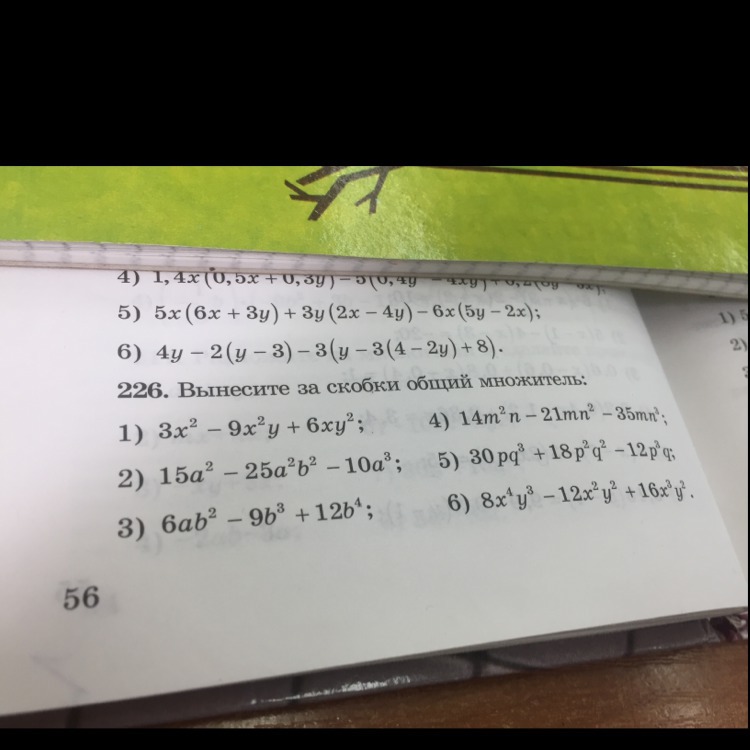 4) 1,4x(0,5x + 0,3y) – 5(0,4y
5) 5x(6x + 3y) + 3y(2x – 4y) – 6x(5y – 2x);
6) 4y – 2(y – 3) – 3(y – 3(4 – 2y) + 8).
226. Вынесите за скобки общий множитель:
1) 3x² – 9x²y + 6xy²;
2) 15a² – 25a²b² – 10a³;
3) 6ab² – 9b³ + 12b⁴;
4) 14m²n – 21mn² – 35mn³;
5) 30pq³ + 18p²q² – 12p³q;
6) 8x⁴y³ – 12x²y² + 16x³y².
56
1)
2)